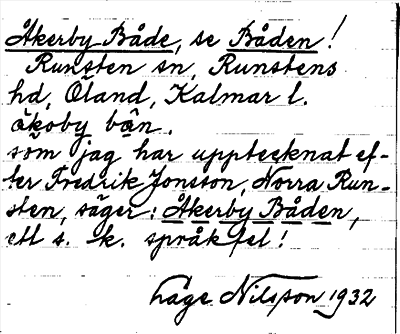 Åkerby Både, se Båden!
Runsten sn, Runstens
hd, Öland, Kalmar l.
åkoby bån.
som jag har upptecknat ef-
ter Fredrik Jonsson, Norra Run-
sten, säger: Åkerby Båden,
ett s. k. språkfel!
Låge Nilsson 1932